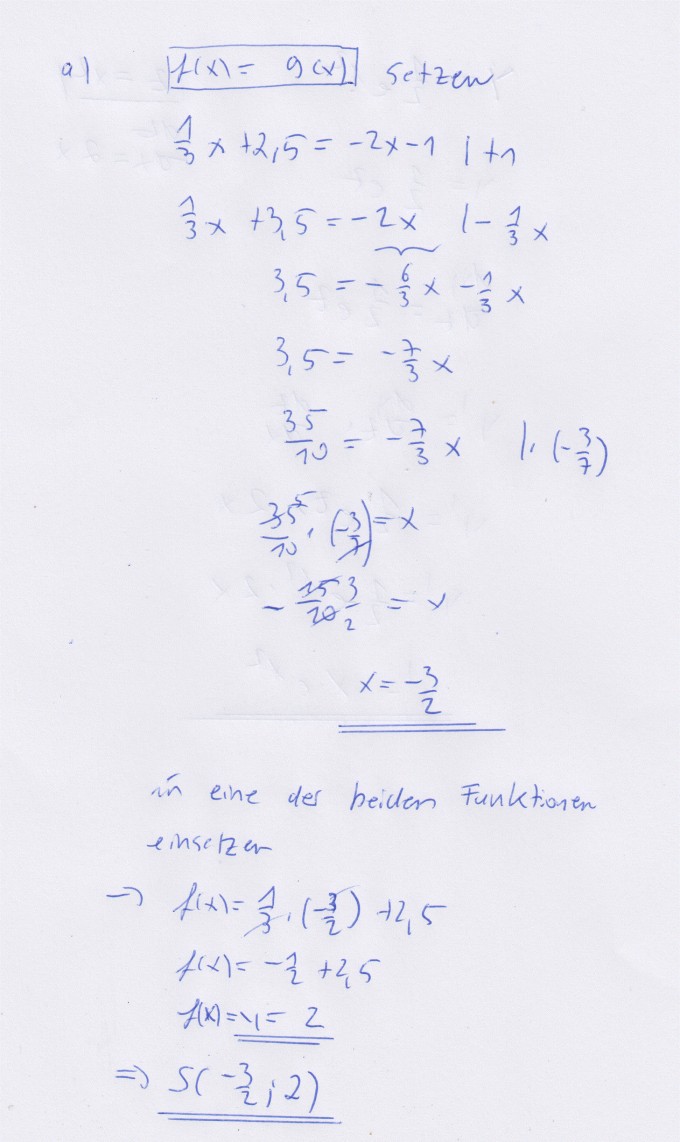 a) f(x) = g(x) setzen
1/3 x + 2,5 = -2x - 1 | +1
1/3 x + 3,5 = -2x | - 1/3 x
3,5 = - 6/3 x - 1/3 x
3,5 = - 7/3 x
35/10 = - 7/3 x | · (- 3/7)
35/10 5 · (- 3/7) = x
- 15/10 3/2 = x
x = - 3/2
in eine der beiden Funktionen
einsetzen
→ f(x) = 1/3 · (- 3/2) + 2,5
f(x) = - 1/2 + 2,5
f(x) = y = 2
⇒ S(- 3/2 ; 2)